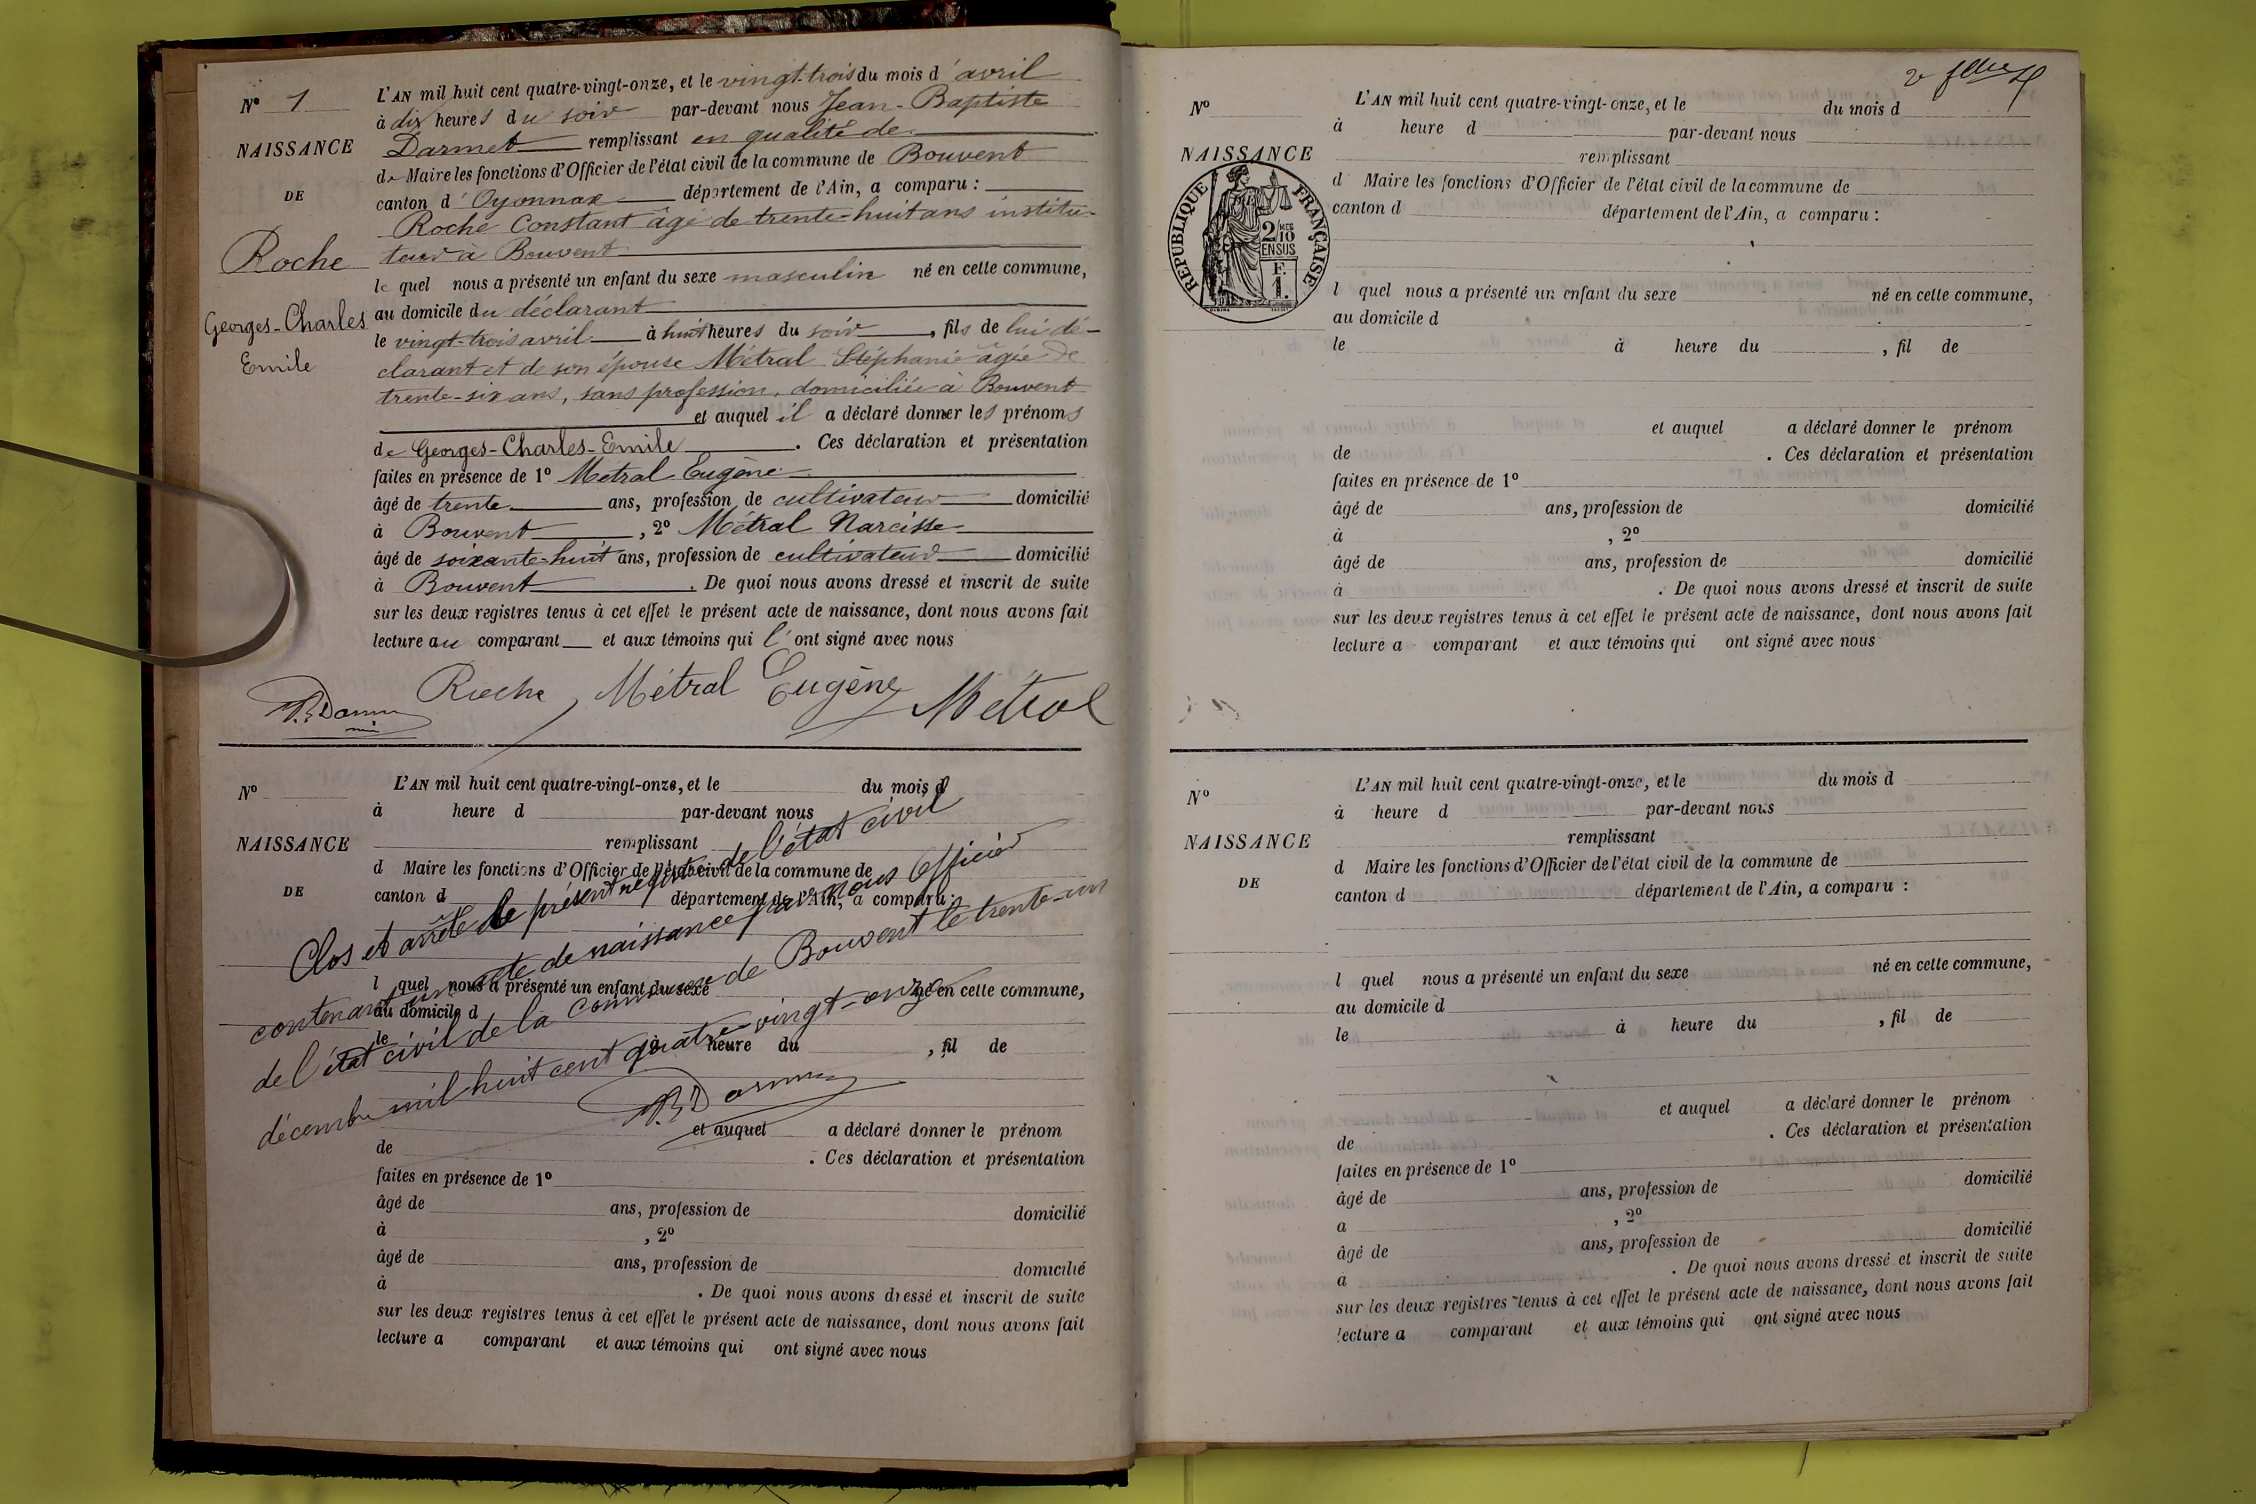 N° 1
NAISSANCE
DE
Roche
Georges-Charles
Emile
L'AN mil huit cent quatre-vingt-onze, et le vingt-trois du mois d'avril
à dix heures du soir par-devant nous Jean-Baptiste
Darmet remplissant en qualité de
de Maire les fonctions d'Officier de l'état civil de la commune de Bouvent
canton d'Oyonnax département de l'Ain, a comparu :
Roche Constant âgé de trente-huit ans institu-
teur à Bouvent
le quel nous a présenté un enfant du sexe masculin né en cette commune,
au domicile du déclarant
le vingt-trois avril à huit heures du soir, fils de lui dé-
clarant et de son épouse Métral Stéphanie âgée de
trente-six ans, sans profession, domiciliée à Bouvent
et auquel il a déclaré donner les prénoms
de Georges-Charles-Emile. Ces déclaration et présentation
faites en présence de 1° Metral Eugène
âgé de trente ans, profession de cultivateur domicilié
à Bouvent, 2° Métral Narcisse
âgé de soixante-huit ans, profession de cultivateur domicilié
à Bouvent. De quoi nous avons dressé et inscrit de suite
sur les deux registres tenus à cet effet le présent acte de naissance, dont nous avons fait
lecture au comparant et aux témoins qui l'ont signé avec nous
Roche Métral Eugène Métral
N°
NAISSANCE
DE
L'AN mil huit cent quatre-vingt-onze, et le du mois d
à heure d par-devant nous
remplissant
d Maire les fonctions d'Officier de l'état civil de la commune de
canton d département de l'Ain, a comparu :
Clos et arrêté le présent registre de l'état civil
contenant un acte de naissance par nous Officier
de l'état civil de la commune de Bouvent le trente-un
décembre mil huit cent quatre-vingt-onze
l quel nous a présenté un enfant du sexe né en cette commune,
au domicile d
le à heure du , fil de
et auquel a déclaré donner le prénom
de . Ces déclaration et présentation
faites en présence de 1°
âgé de ans, profession de domicilié
à , 2°
âgé de ans, profession de domicilié
à . De quoi nous avons dressé et inscrit de suite
sur les deux registres tenus à cet effet le présent acte de naissance, dont nous avons fait
lecture a comparant et aux témoins qui ont signé avec nous
N°
NAISSANCE
RÉPUBLIQUE FRANÇAISE
2/10
EN SUS
F.
1.
L'AN mil huit cent quatre-vingt-onze, et le du mois d
à heure d par-devant nous
remplissant
d Maire les fonctions d'Officier de l'état civil de la commune de
canton d département de l'Ain, a comparu :
l quel nous a présenté un enfant du sexe né en cette commune,
au domicile d
le à heure du , fil de
et auquel a déclaré donner le prénom
de . Ces déclaration et présentation
faites en présence de 1°
âgé de ans, profession de domicilié
à , 2°
âgé de ans, profession de domicilié
à . De quoi nous avons dressé et inscrit de suite
sur les deux registres tenus à cet effet le présent acte de naissance, dont nous avons fait
lecture a comparant et aux témoins qui ont signé avec nous
N°
NAISSANCE
DE
L'AN mil huit cent quatre-vingt-onze, et le du mois d
à heure d par-devant nous
remplissant
d Maire les fonctions d'Officier de l'état civil de la commune de
canton d département de l'Ain, a comparu :
l quel nous a présenté un enfant du sexe né en cette commune,
au domicile d
le à heure du , fil de
et auquel a déclaré donner le prénom
de . Ces déclaration et présentation
faites en présence de 1°
âgé de ans, profession de domicilié
a , 2°
âgé de ans, profession de domicilié
a . De quoi nous avons dressé et inscrit de suite
sur les deux registres tenus à cet effet le présent acte de naissance, dont nous avons fait
lecture a comparant et aux témoins qui ont signé avec nous